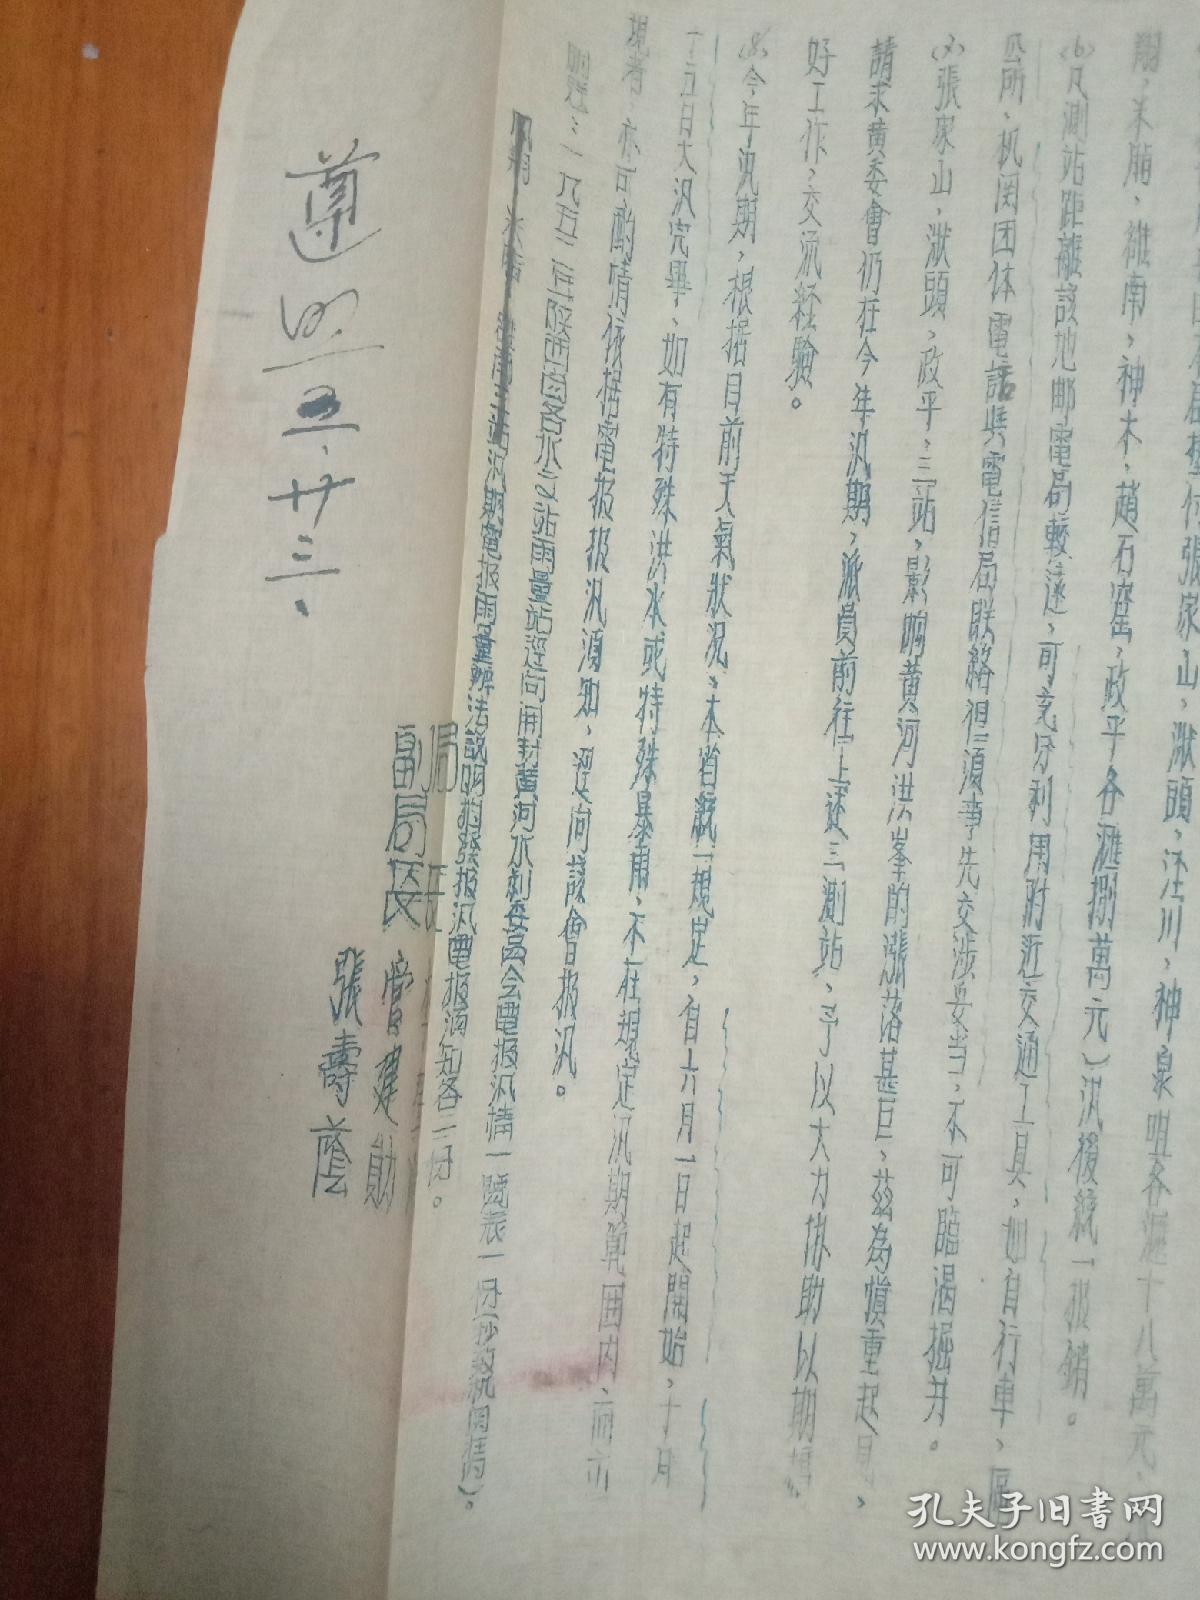 張家山，洑頭，涇川，神泉咀各滙十八萬元，
米脂，雒南，神木，趙石窑，政平各滙捌萬元）汛後統一报銷。
(6)凡測站距離該地邮電局較遠，可充分利用附近交通工具，如自行車，區
公所、机関团体電話與電信局联絡但須事先交涉妥当，不可臨渴掘井。
(7)張家山，洑頭，政平，三站，影响黄河洪峯的漲落甚巨，茲為慎重起見，
請求黄委會仍在今年汛期，派員前往上述三測站，予以大力协助以期搞
好工作，交流经驗。
(8)今年汛期，根据目前天氣狀况，本省統一規定，自六月一日起開始，十月
十五日大汛完畢，如有特殊洪水或特殊暴雨，不在規定汛期範囲内，而出
現者，亦可酌情依据電报报汛須知，逕向該會报汛。
附發：一九五二年陝西省各水文站雨量站逕向開封黄河水利委員会電报汛情一覽表一份（抄致机関
三站汛期電报雨量辦法說明
报汛電报須知各三份。
局長
副局長 管建勛
張壽蔭
遵照 五、廿三、
孔夫子旧書网
www.kongfz.com